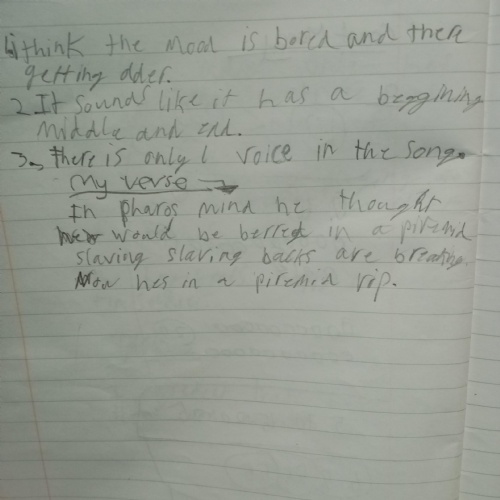 1) i think the mood is bored and there
getting older.
2 It sounds like it has a beggining
middle and end.
3. there is only 1 voice in the song.
My verse →
In pharos mind he thought
would be berred in a piremid
slaving slaving backs are breaking.
Now hes in a piremid rip.